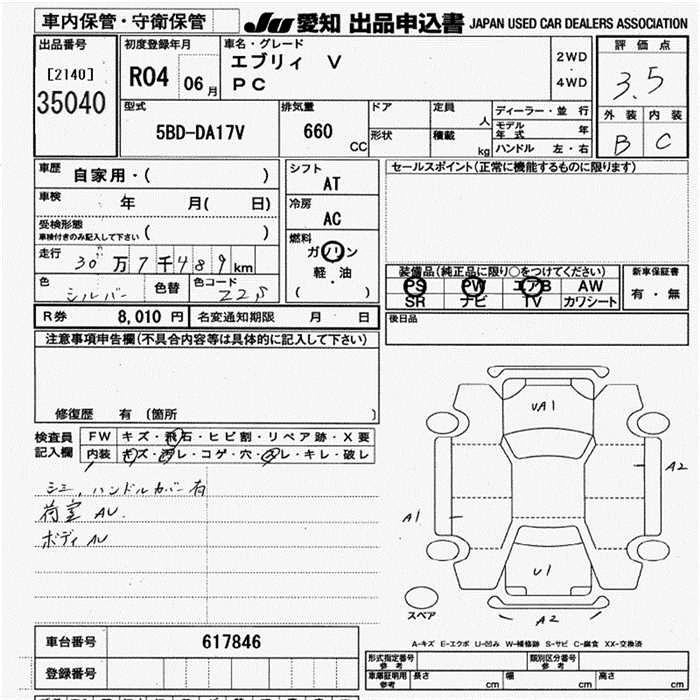 車内保管・守衛保管
JU 愛知 出品申込書 JAPAN USED CAR DEALERS ASSOCIATION
出品番号
[2140]
35040
初度登録年月
R04 06月
車名・グレード
エブリィ V
PC
2WD
・
4WD
評価点
3.5
外装 内装
B C
型式
5BD-DA17V
排気量
660 CC
ドア
形状
定員
人
積載
kg
ディーラー・並行
モデル年式 年
ハンドル 左・右
車歴 自家用・( )
車検 年 月( 日)
受検形態
車検付きのみ記入して下さい ( )
走行 30万7千489km
色 シルバー 色替 色コード Z2S
シフト
AT
冷房
AC
燃料
ガソリン
軽・油
( )
セールスポイント(正常に機能するものに限ります)
装備品(純正品に限り○をつけてください)
PS PW エアB AW
SR ナビ TV カワシート
新車保証書
有・無
後日品
R券 8,010円 名変通知期限 月 日
注意事項申告欄(不具合内容等は具体的に記入して下さい)
修復歴 有 〔箇所 〕
検査員記入欄
FW キズ・飛石・ヒビ割・リペア跡・X要
内装 キズ・汚レ・コゲ・穴・スレ・キレ・破レ
シミ、ハンドルカバー有
荷室 AU.
ボディ AU
UA1
A2
A1
U1
A2
スペア
A-キズ E-エクボ U-凹み W-補修跡 S-サビ C-腐食 XX-交換済
車台番号 617846
登録番号
形式指定番号 参考
類別区分番号 参考
車庫証明用 参考 長さ cm 幅 cm 高さ cm